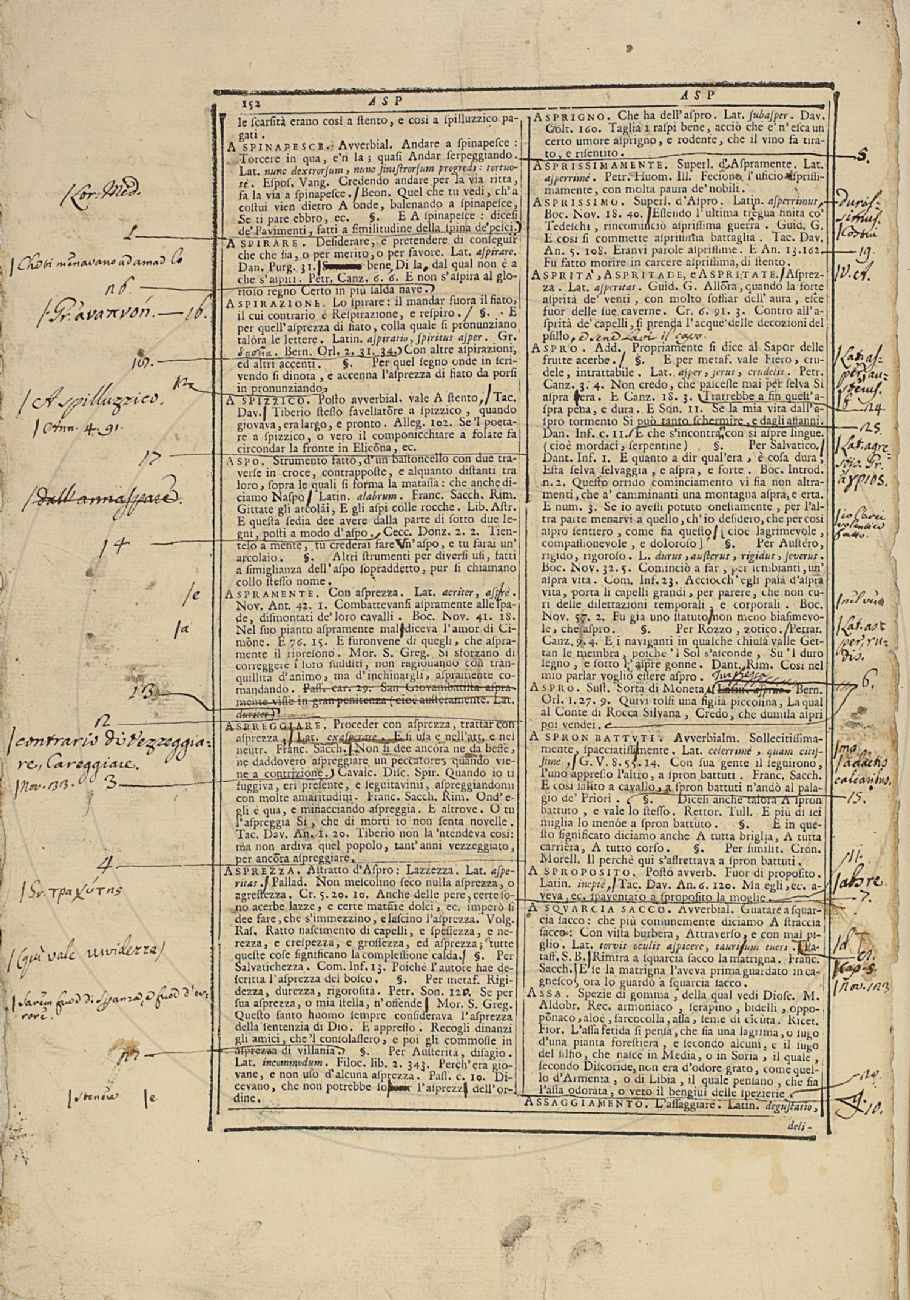 152
ASP
ASP
le scarsità erano così a stento, e così a spilluzzico pa-
gati.
A SPINAPESCE. Avverbial. Andare a spinapesce:
Torcere in qua, e'n là; quasi Andar serpeggiando.
Lat. nunc dextrorsum, nunc sinistrorsum progredi: tortuo-
se. Espos. Vang. Credendo andare per la via ritta,
fa la via a spinapesce. Beon. Quel che tu vedi, ch'a
costui vien dietro A onde, balenando a spinapesce,
Se ti pare ebbro, ec. §. E A spinapesce: dicesi
de' Pavimenti, fatti a similitudine della spina de'pesci.
ASPIRARE. Desiderare, e pretendere di conseguir
che che sia, o per merito, o per favore. Lat. aspirare.
Dan. Purg. 31. bene Di là, dal qual non è a
che s'aspiri. Petr. Canz. 6. 6. E non s'aspira al glo-
rioso regno Certo in più salda nave.
ASPIRAZIONE. Lo spirare: il mandar fuora il fiato,
il cui contrario è Respirazione, e respiro. §. E
per quell'asprezza di fiato, colla quale si pronunziano
talora le lettere. Latin. aspiratio, spiritus asper. Gr.
Bern. Orl. 2. 31. 34. Con altre aspirazioni,
ed altri accenti. §. Per quel segno onde in scri-
vendo si dinota, e accenna l'asprezza di fiato da porsi
in pronunziando.
A SPIZZICO. Posto avverbial. vale A stento, Tac.
Dav. Tiberio stesso favellatore a spizzico, quando
giovava, era largo, e pronto. Alleg. 102. Se 'l poeta-
re a spizzico, o vero il componicchiare a folate fa
circondar la fronte in Elicona, ec.
ASPO. Strumento fatto, d'un bastoncello con due tra-
verse in croce, contrapposte, e alquanto distanti tra
loro, sopra le quali si forma la matassa: che anche di-
ciamo Naspo. Latin. alabrum. Franc. Sacch. Rim.
Gittate gli arcolai, E gli aspi colle rocche. Lib. Astr.
E questa sedia dee avere dalla parte di sotto due le-
gni, posti a modo d'aspo. Cecc. Donz. 2. 2. Tien-
telo a mente, tu crederai fare un'aspo, e tu farai un'
arcolaio. §. Altri strumenti per diversi usi, fatti
a simiglianza dell'aspo sopraddetto, pur si chiamano
collo stesso nome.
ASPRAMENTE. Con asprezza. Lat. acriter, aspre.
Nov. Ant. 42. 1. Combattevansi aspramente alle spa-
de, dismontati de' loro cavalli. Boc. Nov. 41. 18.
Nel suo pianto aspramente maldiceva l'amor di Ci-
mone. E 76. 15. E furonvene di quegli, che aspra-
mente il ripresono. Mor. S. Greg. Si sforzano di
correggere i loro sudditi, non ragionando con tran-
quillità d'animo, ma d'inchinargli, aspramente co-
mandando. Pass. car. 29. San Giovanibatista aspra-
mente visse in gran penitenza (cioè austeramente. Lat.
duriter)
ASPREGGIARE. Proceder con asprezza, trattar con
asprezza. Lat. exasperare. E si usa e nell'att. e nel
neutr. Franc. Sacch. Non si dee ancora ne da beffe,
ne daddovero aspreggiare un peccatore quando vie-
ne a contrizione. Cavalc. Disc. Spir. Quando io ti
fuggiva, eri presente, e seguitavimi, aspreggiandomi
con molte amaritudini. Franc. Sacch. Rim. Ond' e-
gli è qua, e minacciando aspreggia. E altrove. O tu
l'aspreggia Sì, che di morti io non senta novelle.
Tac. Dav. An. 1. 20. Tiberio non la 'ntendeva così:
ma non ardiva quel popolo, tant'anni vezzeggiato,
per ancora aspreggiare.
ASPREZZA. Astratto d'Aspro: Lazzezza. Lat. aspe-
ritas. Pallad. Non mescolino seco nulla asprezza, o
agrestezza. Cr. 5. 20. 10. Anche delle pere, certe so-
no acerbe lazze, e certe mature dolci, ec. imperò si
dee fare, che s'immezzino, e lascino l'asprezza. Volg.
Ras. Ratto nascimento di capelli, e spessezza, e ne-
rezza, e crespezza, e grossezza, ed asprezza; tutte
queste cose significano la complessione calda. §. Per
Salvatichezza. Com. Inf. 13. Poichè l'autore hae de-
scritta l'asprezza del bosco. §. Per metaf. Rigi-
dezza, durezza, rigorosità. Petr. Son. 120. Se per
sua asprezza, o mia stella, n'offende. Mor. S. Greg.
Questo santo huomo sempre considerava l'asprezza
della sentenzia di Dio. E appresso. Recogli dinanzi
gli amici, che 'l consolassero, e poi gli commosse in
asprezza di villania. §. Per Austerità, disagio.
Lat. incommodum. Filoc. lib. 2. 343. Perch'era gio-
vane, e non uso d'alcuna asprezza. Pass. c. 10. Di-
cevano, che non potrebbe l'asprezza dell'or-
dine.
ASPRIGNO. Che ha dell'aspro. Lat. subasper. Dav.
Colt. 160. Taglia i raspi bene, acciò che e' n'esca un
certo umore asprigno, e rodente, che il vino fa tira-
to, e risentito.
ASPRISSIMAMENTE. Superl. d'Aspramente. Lat.
asperrimè. Petr. Huom. Ill. Feciono l'uficio asprissi-
mamente, con molta paura de' nobili.
ASPRISSIMO. Superl. d'Aspro. Latin. asperrimus,
Boc. Nov. 18. 40. Essendo l'ultima tregua finita co'
Tedeschi, rincominciò asprissima guerra. Guid. G.
E così si commette asprissima battaglia. Tac. Dav.
An. 3. 108. Eranvi parole asprissime. E An. 13. 162.
Fu fatto morire in carcere asprissima, di stento.
ASPRITÀ, ASPRITADE, e ASPRITATE. Asprez-
za. Lat. asperitas. Guid. G. Allora, quando la forte
asprità de' venti, con molto soffiar dell'aura, esce
fuor delle sue caverne. Cr. 6. 91. 3. Contro all'a-
sprità de' capelli, si prenda l'acque delle decozioni del
psillo, e sene lavi il capo.
ASPRO. Add. Propriamente si dice al Sapor delle
frutte acerbe. §. E per metaf. vale Fiero, cru-
dele, intrattabile. Lat. asper, ferus, crudelis. Petr.
Canz. 3. 4. Non credo, che pascesse mai per selva Sì
aspra fera. E Canz. 18. 3. Trarrebbe a fin quest'a-
spra pena, e dura. E Son. 11. Se la mia vita dall'a-
spro tormento Si può tanto schermire, e dagli affanni.
Dan. Inf. c. 11. E che s'incontra con sì aspre lingue.
(cioè mordaci, serpentine) §. Per Salvatico,
Dant. Inf. 1. E quanto a dir qual'era, è cosa dura,
Esta selva selvaggia, e aspra, e forte. Boc. Introd.
n. 2. Questo orrido cominciamento vi fia non altra-
menti, che a' camminanti una montagna aspra, e erta.
E num. 3. Se io avessi potuto onestamente, per l'al-
tra parte menarvi a quello, ch'io desidero, che per così
aspro sentiero, come fia questo (cioe lagrimevole,
compassionevole, e doloroso) §. Per Austero,
rigido, rigoroso. L. durus, austerus, rigidus, severus.
Boc. Nov. 32. 5. Cominciò a far, per sembianti, un'
aspra vita. Com. Inf. 23. Acciocch'egli paia d'aspra
vita, porta li capelli grandi, per parere, che non cu-
ri delle dilettazioni temporali, e corporali. Boc.
Nov. 57. 2. Fu già uno statuto non meno biasimevo-
le, che aspro. §. Per Rozzo, zotico. Petrar.
Canz. 9. 4. E i naviganti in qualche chiusa valle Get-
tan le membra, poichè 'l Sol s'asconde, Su 'l duro
legno, e sotto l'aspre gonne. Dant. Rim. Così nel
mio parlar voglio essere aspro.
ASPRO. Sust. Sorta di Moneta. Latin. asprus. Bern.
Orl. 1. 27. 9. Quivi tolsi una figlia piccolina, La qual
al Conte di Rocca Silvana, Credo, che dumila aspri
poi vendei.
A SPRON BATTUTI. Avverbialm. Sollecitissima-
mente, spacciatissimamente. Lat. celerrimè, quam citis-
sime, G. V. 8. 55. 14. Con sua gente il seguirono,
l'uno appresso l'altro, a spron battuti. Franc. Sacch.
E così salito a cavallo, a spron battuti n'andò al pala-
gio de' Priori. §. Dicesi anche talora A spron
battuto, e vale lo stesso. Rettor. Tull. E più di sei
miglia lo menòe a spron battuto. §. E in que-
sto significato diciamo anche A tutta briglia, A tutta
carriera, A tutto corso. §. Per similit. Cron.
Morell. Il perchè qui s'affrettava a spron battuti.
A SPROPOSITO. Posto avverb. Fuor di proposito.
Latin. ineptè, Tac. Dav. An. 6. 120. Ma egli, ec. a-
veva, ec. spaventato a sproposito la moglie.
A SQUARCIA SACCO. Avverbial. Guatare a squar-
cia sacco: che più comunemente diciamo A straccia
sacco: Con vista burbera, Attraverso, e con mal pi-
glio. Lat. torvis oculis aspicere, taurinum tueri. Pa-
taff. S. B. Rimira a squarcia sacco la matrigna. Franc.
Sacch. E se la matrigna l'aveva prima guardato in ca-
gnesco, ora lo guardò a squarcia sacco.
ASSA. Spezie di gomma, della qual vedi Diosc. M.
Aldobr. Rec. armoniaco, serapino, bidelli, oppo-
ponaco, aloè, sarcocolla, assa, seme di cicuta. Ricet.
Fior. L'assa fetida si pensa, che sia una lagrima, o sugo
d'una pianta forestiera, e secondo alcuni, è il sugo
del silfio, che nasce in Media, o in Soria, il quale,
secondo Discoride, non era d'odore grato, come quel-
lo d'Armenia, o di Libia, il quale pensano, che sia
l'assa odorata, o vero il bengiui delle spezierie.
ASSAGGIAMENTO. L'assaggiare. Latin. degustatio,
deli-
16.
A spilluzzico.
Ann. 4. 91.
17
dall'annaspare.
14
e
a
13
12
contrario di Vezzeggia-
re, Careggiare.
Nov. 133. 3
4
Gr. τραχύτης
(qui vale ruvidezza)
e
5.
19.
24
25.
Lat. agre-
stis. Gr.
ἄγριος.
6.
15.
11.
7.
Nov. 123
10.